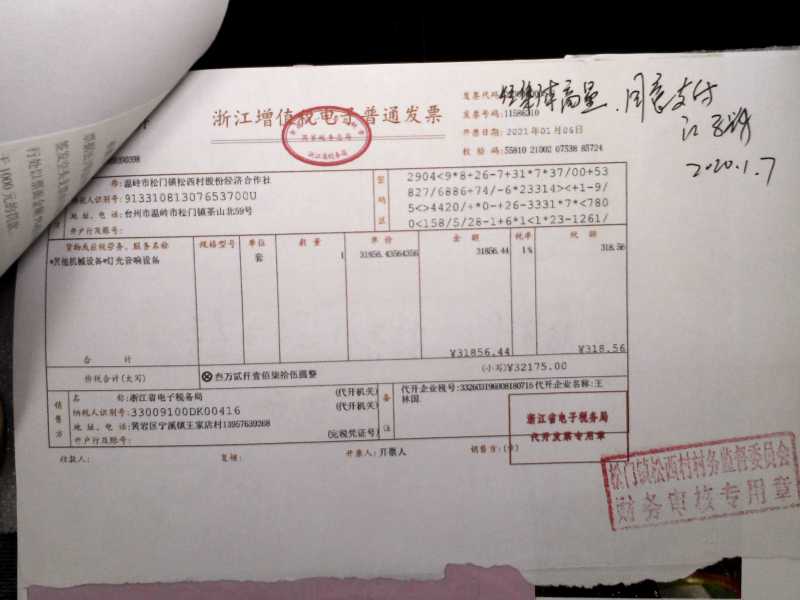 浙江增值税电子普通发票
发票代码
发票号码:11586310
开票日期:2021年01月06日
校 验 码:55810 21002 07538 85724
浙江省税务局
同意支付
2020.1.7
称:温岭市松门镇松西村股份经济合作社
纳税人识别号:91331081307653700U
地 址、电 话:台州市温岭市松门镇茶山北59号
开户行及账号:
密码区
2904<9*8+26-7+31*7*37/00+53
827/6886+74/-6*23314><+1-9/
5<>4420/+*0-+26-3331*7*<780
0<158/5/28-1+6*1<1*23-1261/
货物或应税劳务、服务名称 规格型号 单位 数量 单价 金额 税率 税额
*其他机械设备*灯光音响设备 套 1 31856.43564356 31856.44 1% 318.56
合 计 ¥31856.44 ¥318.56
价税合计(大写) ⊗叁万贰仟壹佰柒拾伍圆整 (小写)¥32175.00
销售方
名 称:浙江省电子税务局 (代开机关)
纳税人识别号:33009100DK00416 (代开机关)
地 址、电 话:黄岩区宁溪镇王家店村13957639268
开户行及账号: (完税凭证号)
备注
代开企业税号:332603196808180716 代开企业名称:王
林国
浙江省电子税务局
代开发票专用章
收款人: 复核: 开票人:开票人 销售方:(章)
松门镇松西村村务监督委员会
财务审核专用章